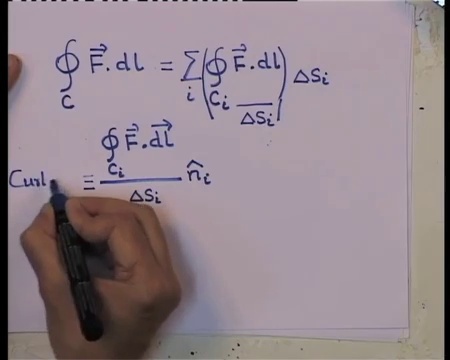 ∮_C F⃗.dl = Σ_i (∮_{C_i} F⃗.dl / ΔS_i) ΔS_i
Curl ≡ ∮_{C_i} F⃗.d⃗l / ΔS_i n̂_i